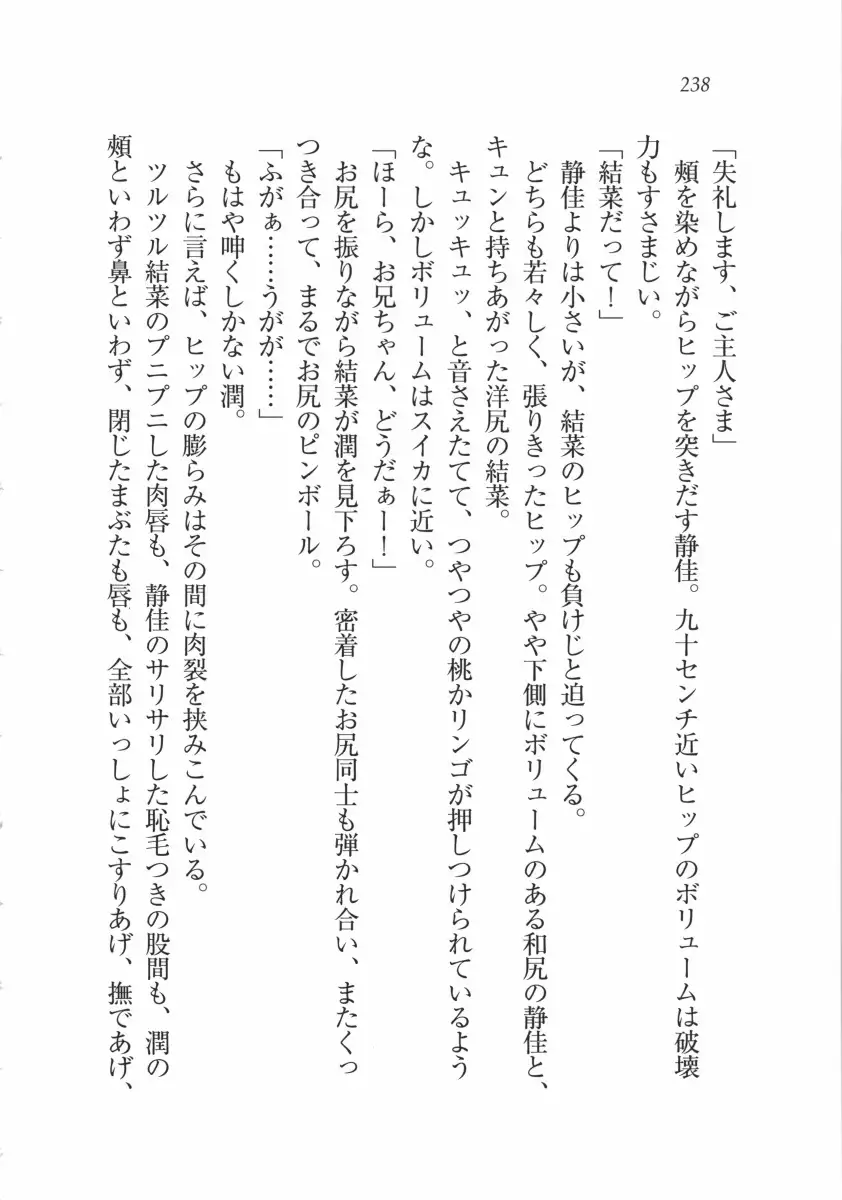 238
「失礼します、ご主人さま」
頬を染めながらヒップを突きだす静佳。九十センチ近いヒップのボリュームは破壊
力もすさまじい。
「結菜だって！」
静佳よりは小さいが、結菜のヒップも負けじと迫ってくる。
どちらも若々しく、張りきったヒップ。やや下側にボリュームのある和尻の静佳と、
キュンと持ちあがった洋尻の結菜。
キュッキュッ、と音さえたてて、つやつやの桃かリンゴが押しつけられているよう
な。しかしボリュームはスイカに近い。
「ほーら、お兄ちゃん、どうだぁー！」
お尻を振りながら結菜が潤を見下ろす。密着したお尻同士も弾かれ合い、またくっ
つき合って、まるでお尻のピンボール。
「ふがぁ……うがが……」
もはや呻くしかない潤。
さらに言えば、ヒップの膨らみはその間に肉裂を挟みこんでいる。
ツルツル結菜のプニプニした肉唇も、静佳のサリサリした恥毛つきの股間も、潤の
頬といわず鼻といわず、閉じたまぶたも唇も、全部いっしょにこすりあげ、撫であげ、